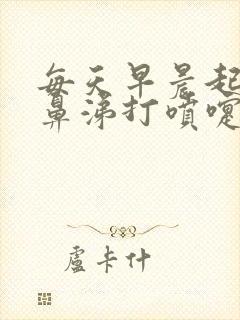 每天早晨起
鼻涕打噴嚏
盧卡什